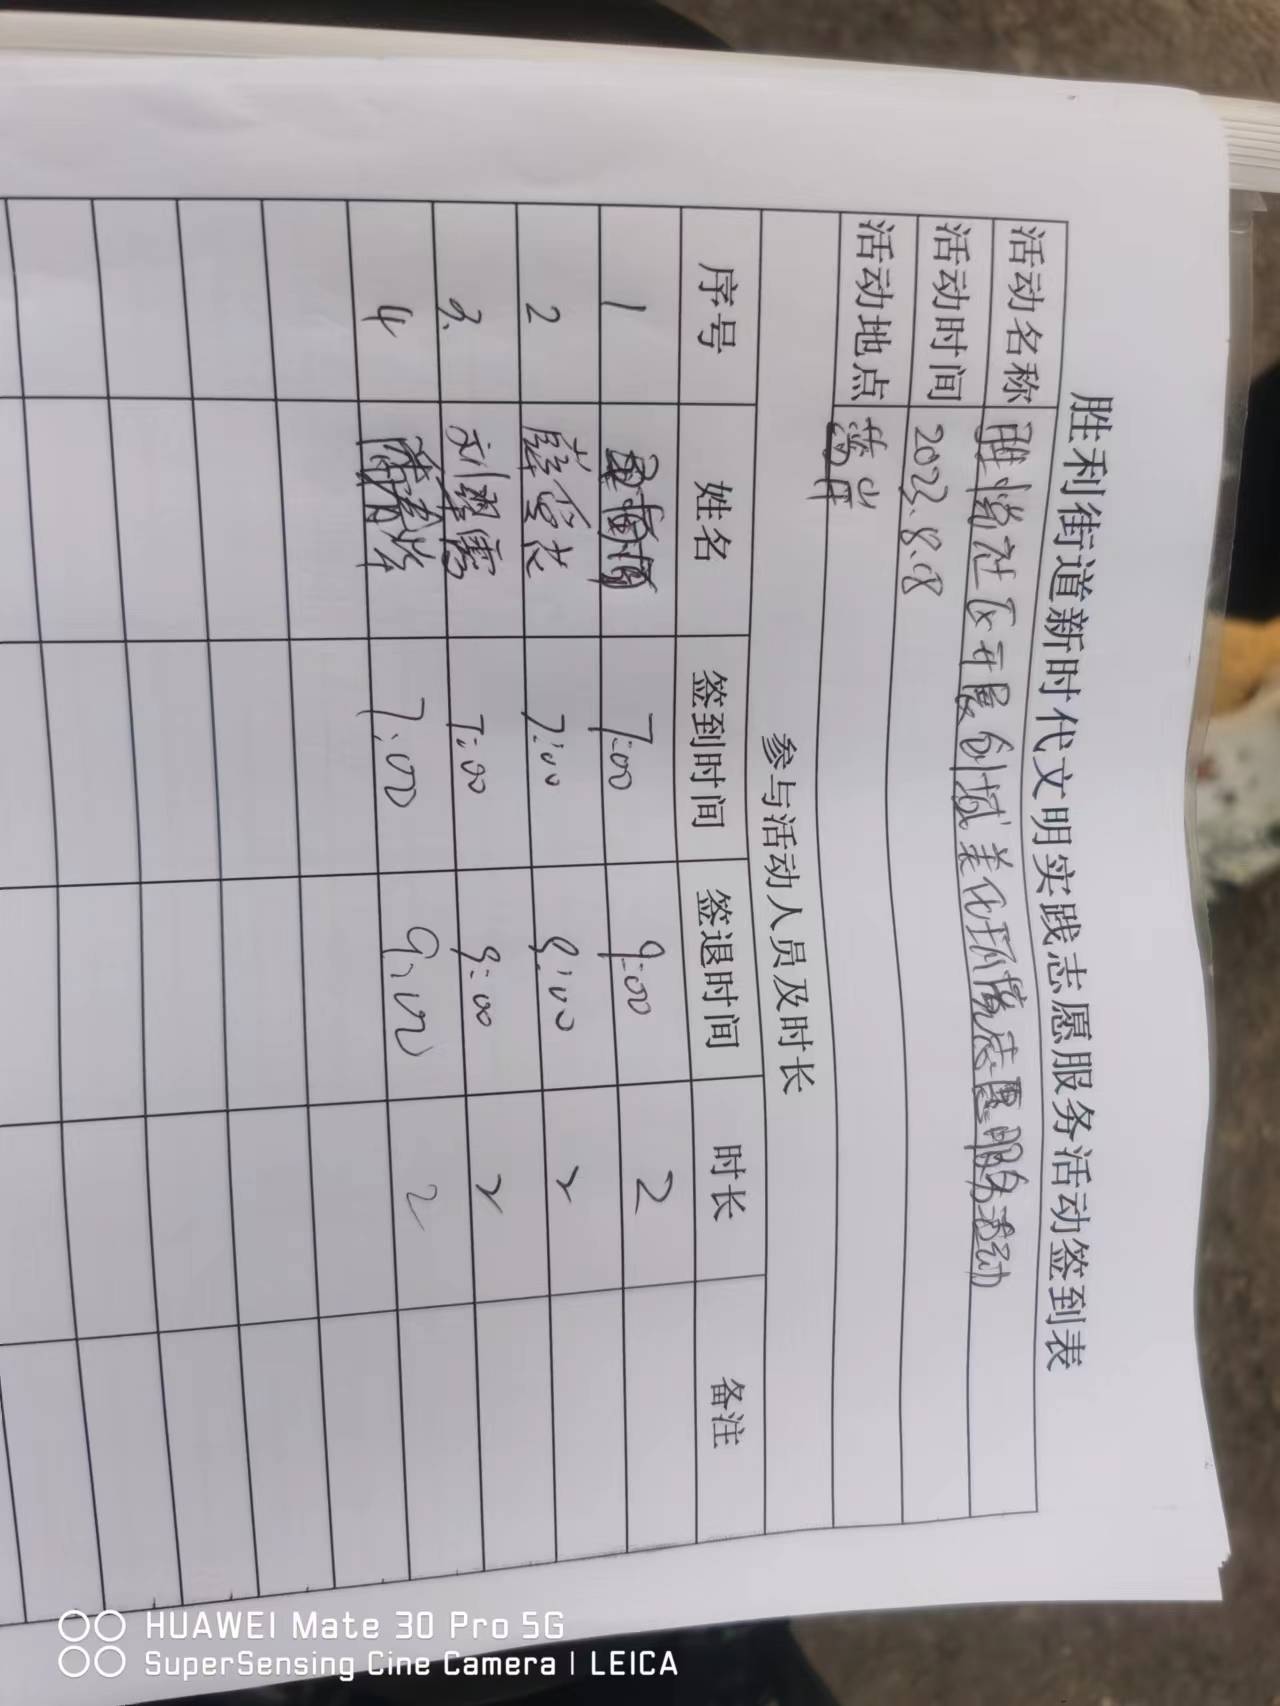 胜利街道新时代文明实践志愿服务活动签到表
活动名称 社区开展创城美化环境志愿服务活动
活动时间 2023.8.18
活动地点
参与活动人员及时长
序号 姓名 签到时间 签退时间 时长 备注
1 7:00 9:00 2
2 7:00 9:00 2
3. 刘翠霞 7:00 9:00 2
4 7:00 9:00 2
HUAWEI Mate 30 Pro 5G
SuperSensing Cine Camera | LEICA